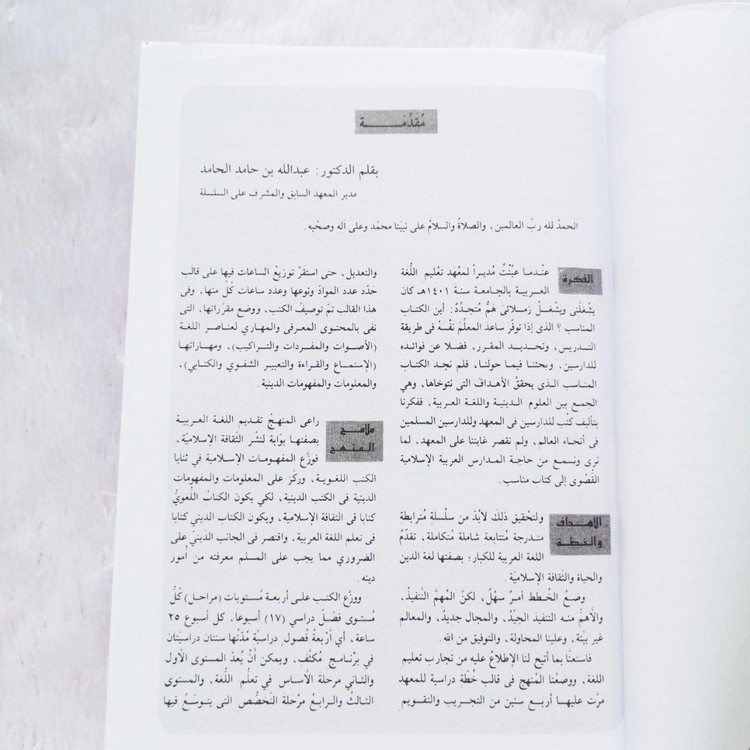 مُقَدِّمَـــــة
بقلم الدكتور: عبدالله بن حامد الحامد
مدير المعهد السابق والمشرف على السلسلة
الحمدُ لله ربّ العالمين، والصلاةُ والسلامُ على نبيّنا محمّد وعلى آله وصحْبِه.
الفكرة
عنْدما عيّنْتُ مُديراً لمعْهد تعْليم اللُّغة
العربية بالجامعة سنة ١٤٠١هـ كان
يشْغلُنى ويشغلُ زملائى همٌّ مُتجدّدٌ: أين الكتاب
المناسب؟ الذى إذا توفّر ساعد المعلّمَ نفْسُه فى طريقة
التدريس، وتحديد المقرر، فضلا عن فوائده
للدارسين، وبحثنا فيما حولنا، فلم نجد الكتاب
المناسب الذى يحققُ الأهدافَ التى نتوخاها، وهي
الجمع بين العلوم الدينية واللغة العربية، ففكرنا
بتأليف كتُب للدارسين فى المعهد وللدارسين المسلمين
فى أنحاء العالم، ولم نقصر غايتنا على المعهد، لما
نرى ونسمع من حاجة المدارس العربية الإسلامية
القُصْوى إلى كتاب مناسب.
الأهداف
والخطة
ولتحْقيق ذلك لابُدّ من سلْسلة مُترابطة
متدرجة مُتتابعة شاملة مُتكاملة، تقدّمُ
اللغة العربية للكبار؛ بصفتها لغة الدين
والحياة والثَّقافة الإسلاميّة.
وضعُ الخُطط أمرٌ سهْلٌ، لكنّ المُهمّ التّنفيذُ،
والأهمّ منه التنفيذ الجيّدُ، والمجال جديدٌ، والمعالم
غير بيّنة، وعلينا المحاولة، والتوفيق من الله.
فاستعنّا بما أتيح لنا الإطلاعُ عليه من تجارب تعليم
اللغة، ووضعْنا المُنهج فى قالب خطّة دراسية للمعهد
مَرّت عليها أربع سنين من التجريب والتقويم
والتعديل، حتى استقرّ توزيعُ الساعات فيها على قالب
حدّد عدد المواد ونوعها وعدد ساعات كُلّ منها، وفى
هذا القالب تمّ توصيف الكتب، ووضع مقرّراتها، التى
تفى بالمحتوى المعرفى والمهاري لعناصر اللغة
(الأصوات والمفردات والتراكيب)، ومهاراتها
(الإستماع والقراءة والتعبير الشفوي والكتابي)،
والمعلومات والمفهومات الدينية.
ملامح
المنهج
راعى المنهجُ تقديم اللغة العربية
بصفتها بوّابة لنشْر الثقافة الإسلاميّة،
فوزّع المفهومات الإسلامية في ثنايا
الكتب اللغويـة، وركّز على المعلومات والمفهومات
الدينية فى الكتب الدينية، لكي يكون الكتابُ اللُّغويُّ
كتابا فى الثقافة الإسلامية، ويكون الكتاب الديني كتابا
فى تعلم اللغة العربية، واقتصر فى الجانب الدّينيّ على
الضروري مما يجب على المسلم معرفته من أمور
دينه.
ووزّع الكتب على أربعة مُستويات (مراحل) كُلّ
مُستوى فصْلٌ دراسي (١٧) أسبوعا، كل أسبوع ٢٥
ساعة، أي أرْبعةُ فُصول دراسيّة مُدّتُها سنتان دراسيتان
في برْنامج مُكثّف، ويمكن أنْ يُعدّ المستوى الأول
والثاني مرحلة الأساس في تعلُّم اللُّغة، والمستوى
الثالثُ والرابعُ مرْحلة التَّخصُّص التى يتوسّعُ فيها